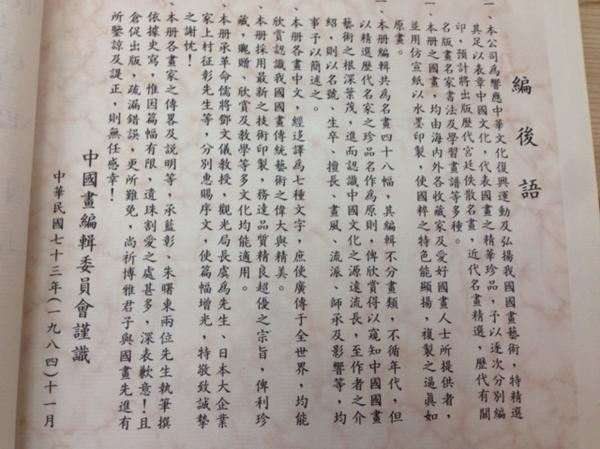 編後語
一、本公司為響應中華文化復興運動及弘揚我國國畫藝術，特精選
其足以表章中國文化，代表國畫之精華珍品，予以逐次分別編
印，預計將出版歷代宮廷佚散名畫，近代名畫精選，歷代有關
名版畫名家書法及學習畫譜等多種。
一、本冊之國畫，均由海內外各收藏家及愛好國畫人士所提供者，
並用仿宣紙以水墨印製，使國粹之特色能顯揚，複製之逼真如
原畫。
一、本冊編輯共為名畫四十八幅，其編輯不分畫類，不循年代，但
以精選歷代名家之珍品名作為原則，俾欣賞得以窺知中國國畫
藝術之根深葉茂，進而認識中國文化之源遠流長，至作者之介
紹，則以名號、生卒、擅長、畫風、流派、師承及影響等，均
事予以簡述之。
、本冊各畫中文，經迻譯為七種文字，庶使廣傳于全世界，均能
欣賞認識我國國畫傳統藝術之偉大與精美。
、本冊採用最新之技術印製，務達品質精良超優之宗旨，俾利珍
藏，贈、欣賞及教學等多文化均能適用。
、本冊承革命儒將鄧文儀教授，觀光局長虞為先生、日本大企業
家上村征彰先生等，分別惠賜序文，使篇幅增光，特敬致誠摯
之謝忱！
、本冊各畫家之傳畧及說明等，承藍彰、朱曙東兩位先生執筆撰
依據史寫，惟因篇幅有限，遺珠割愛之處甚多，深表歉意！且
倉促出版，疏漏錯誤，更所難免，尚祈博雅君子與國畫先進有
所鑒諒及諟正，則無任感幸！
中國畫編輯委員會謹識
中華民國七十三年(一九八四)十一月